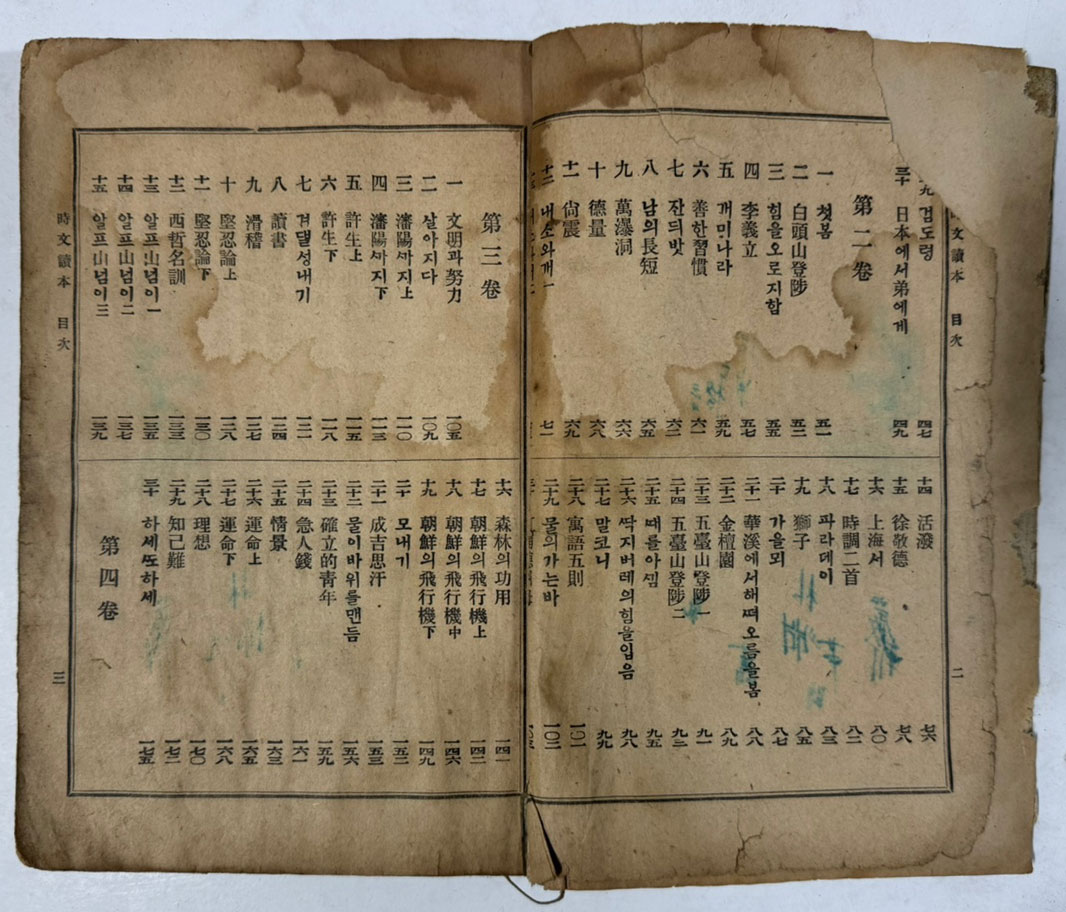 文讀本 目次
검도령 四七
三十 日本에서弟에게 四九
第二卷
一 첫봄 五一
二 白頭山登陟 五二
三 힘을오로지함 五五
四 李義立 五七
五 개미나라 五九
六 善한習慣 六一
七 잔듸밧 六二
八 남의長短 六五
九 萬瀑洞 六六
十 德量 六八
十一 尙震 六九
十二 내소와개一 七一
十四 活潑 七六
十五 徐敬德 七八
十六 上海서 八〇
十七 時調二首 八二
十八 파라데이 八三
十九 獅子 八五
二十 가을뫼 八七
二十一 華溪에서해ᄯᅥ오름을봄 八八
二十二 金檀園 八九
二十三 五臺山登陟一 九一
二十四 五臺山登陟二 九三
二十五 ᄯᅢ를아낌 九五
二十六 ᄯᅡᆨ지버레의힘을입음 九八
二十七 말코니 九九
二十八 寓語五則 一〇一
二十九 물의가는바 一〇二
二
第三卷
一 文明과努力 一〇五
二 살아지다 一〇九
三 瀋陽ᄭᅡ지上 一一〇
四 瀋陽ᄭᅡ지下 一一三
五 許生上 一一五
六 許生下 一一八
七 겨댈성내기 一二一
八 讀書 一二四
九 滑稽 一二七
十 堅忍論上 一二八
十一 堅忍論下 一三〇
十二 西哲名訓 一三三
十三 알프山넘이一 一三五
十四 알프山넘이二 一三七
十五 알프山넘이三 一三九
十六 森林의功用 一四一
十七 朝鮮의飛行機上 一四二
十八 朝鮮의飛行機中 一四六
十九 朝鮮의飛行機下 一四九
二十 모내기 一五二
二十一 成吉思汗 一五三
二十二 물이바위를맨듬 一五六
二十三 確立的靑年 一五九
二十四 急人錢 一六一
二十五 情景 一六三
二十六 運命上 一六五
二十七 運命下 一六八
二十八 理想 一七〇
二十九 知己難 一七二
三十 하세ᄯᅩ하세 一七五
第四卷
時文讀本 目次
三